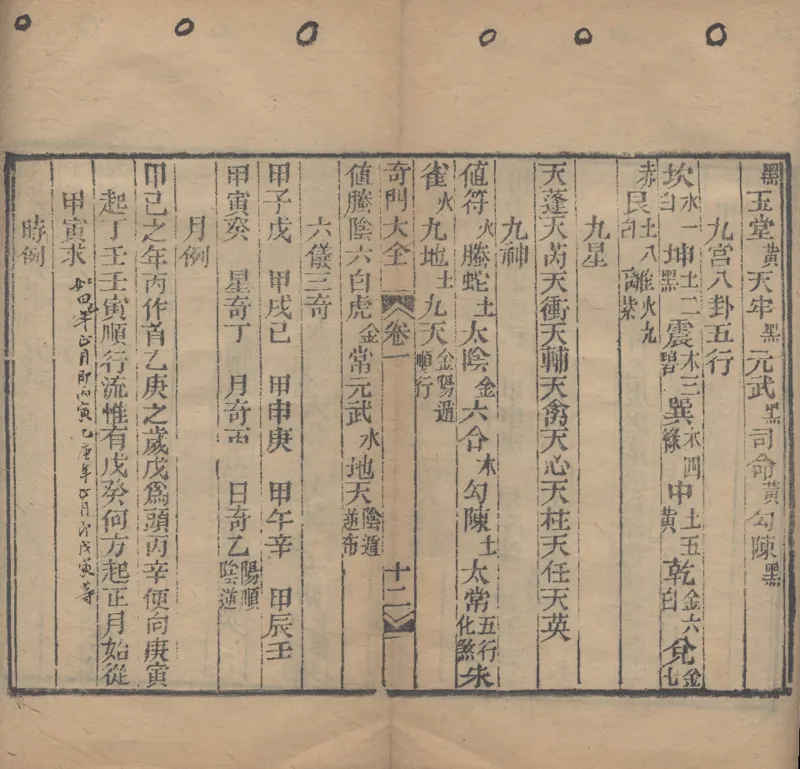 黑玉堂黃天牢黑元武黑司命黃勾陳黑
九宮八卦五行
坎水一白坤土二黑震木三碧巽木四綠中土五黃乾金六白兌金七
赤艮土八白離火九紫
九星
天蓬天芮天衝天輔天禽天心天柱天任天英
九神
值符火螣蛇土太陰金六合木勾陳土太常五行化煞朱
雀火九地土九天金陽遁順行
奇門大全 卷一 十二
值螣陰六白虎金常元武水地天陰遁逆布
六儀三奇
甲子戊 甲戌己 甲申庚 甲午辛 甲辰壬
甲寅癸 星奇丁 月奇丙 日奇乙陽順陰逆
月例
甲己之年丙作首乙庚之歲戊為頭丙辛便向庚寅
起丁壬壬寅順行流惟有戊癸何方起正月始從
甲寅求 如甲年正月即丙寅乙庚年正月即戊寅等
時例